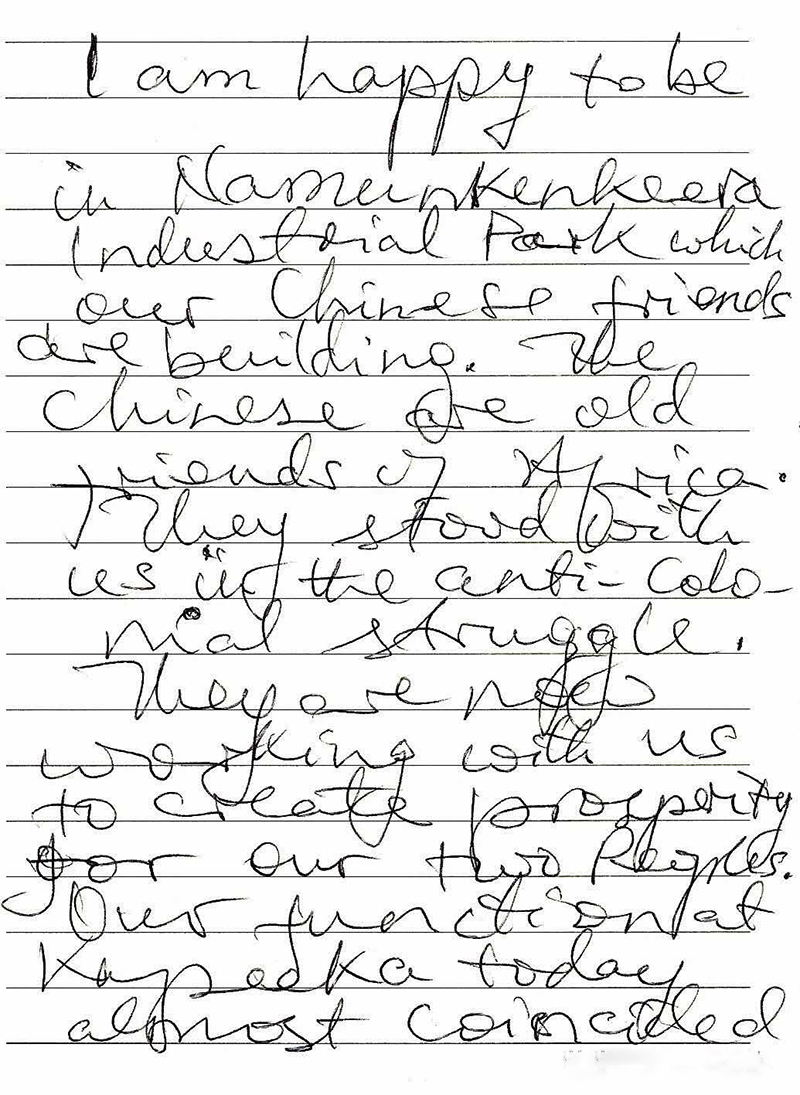 I am happy to be
in Namunkenkeera
Industrial Park which
our Chinese friends
are building. The
Chinese are old
friends of Africa.
They stood with
us in the anti-Colo-
nial struggle.
They are now
working with us
to create prosperity
for our two Peoples.
Our function at
Kapeeka today
almost coincided